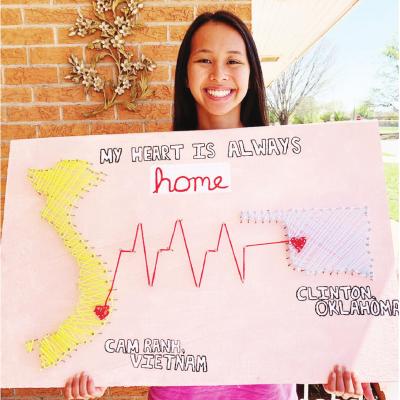 MY HEART IS ALWAYS
home
CLINTON,
OKLAHOMA
CAM RANH,
VIETNAM